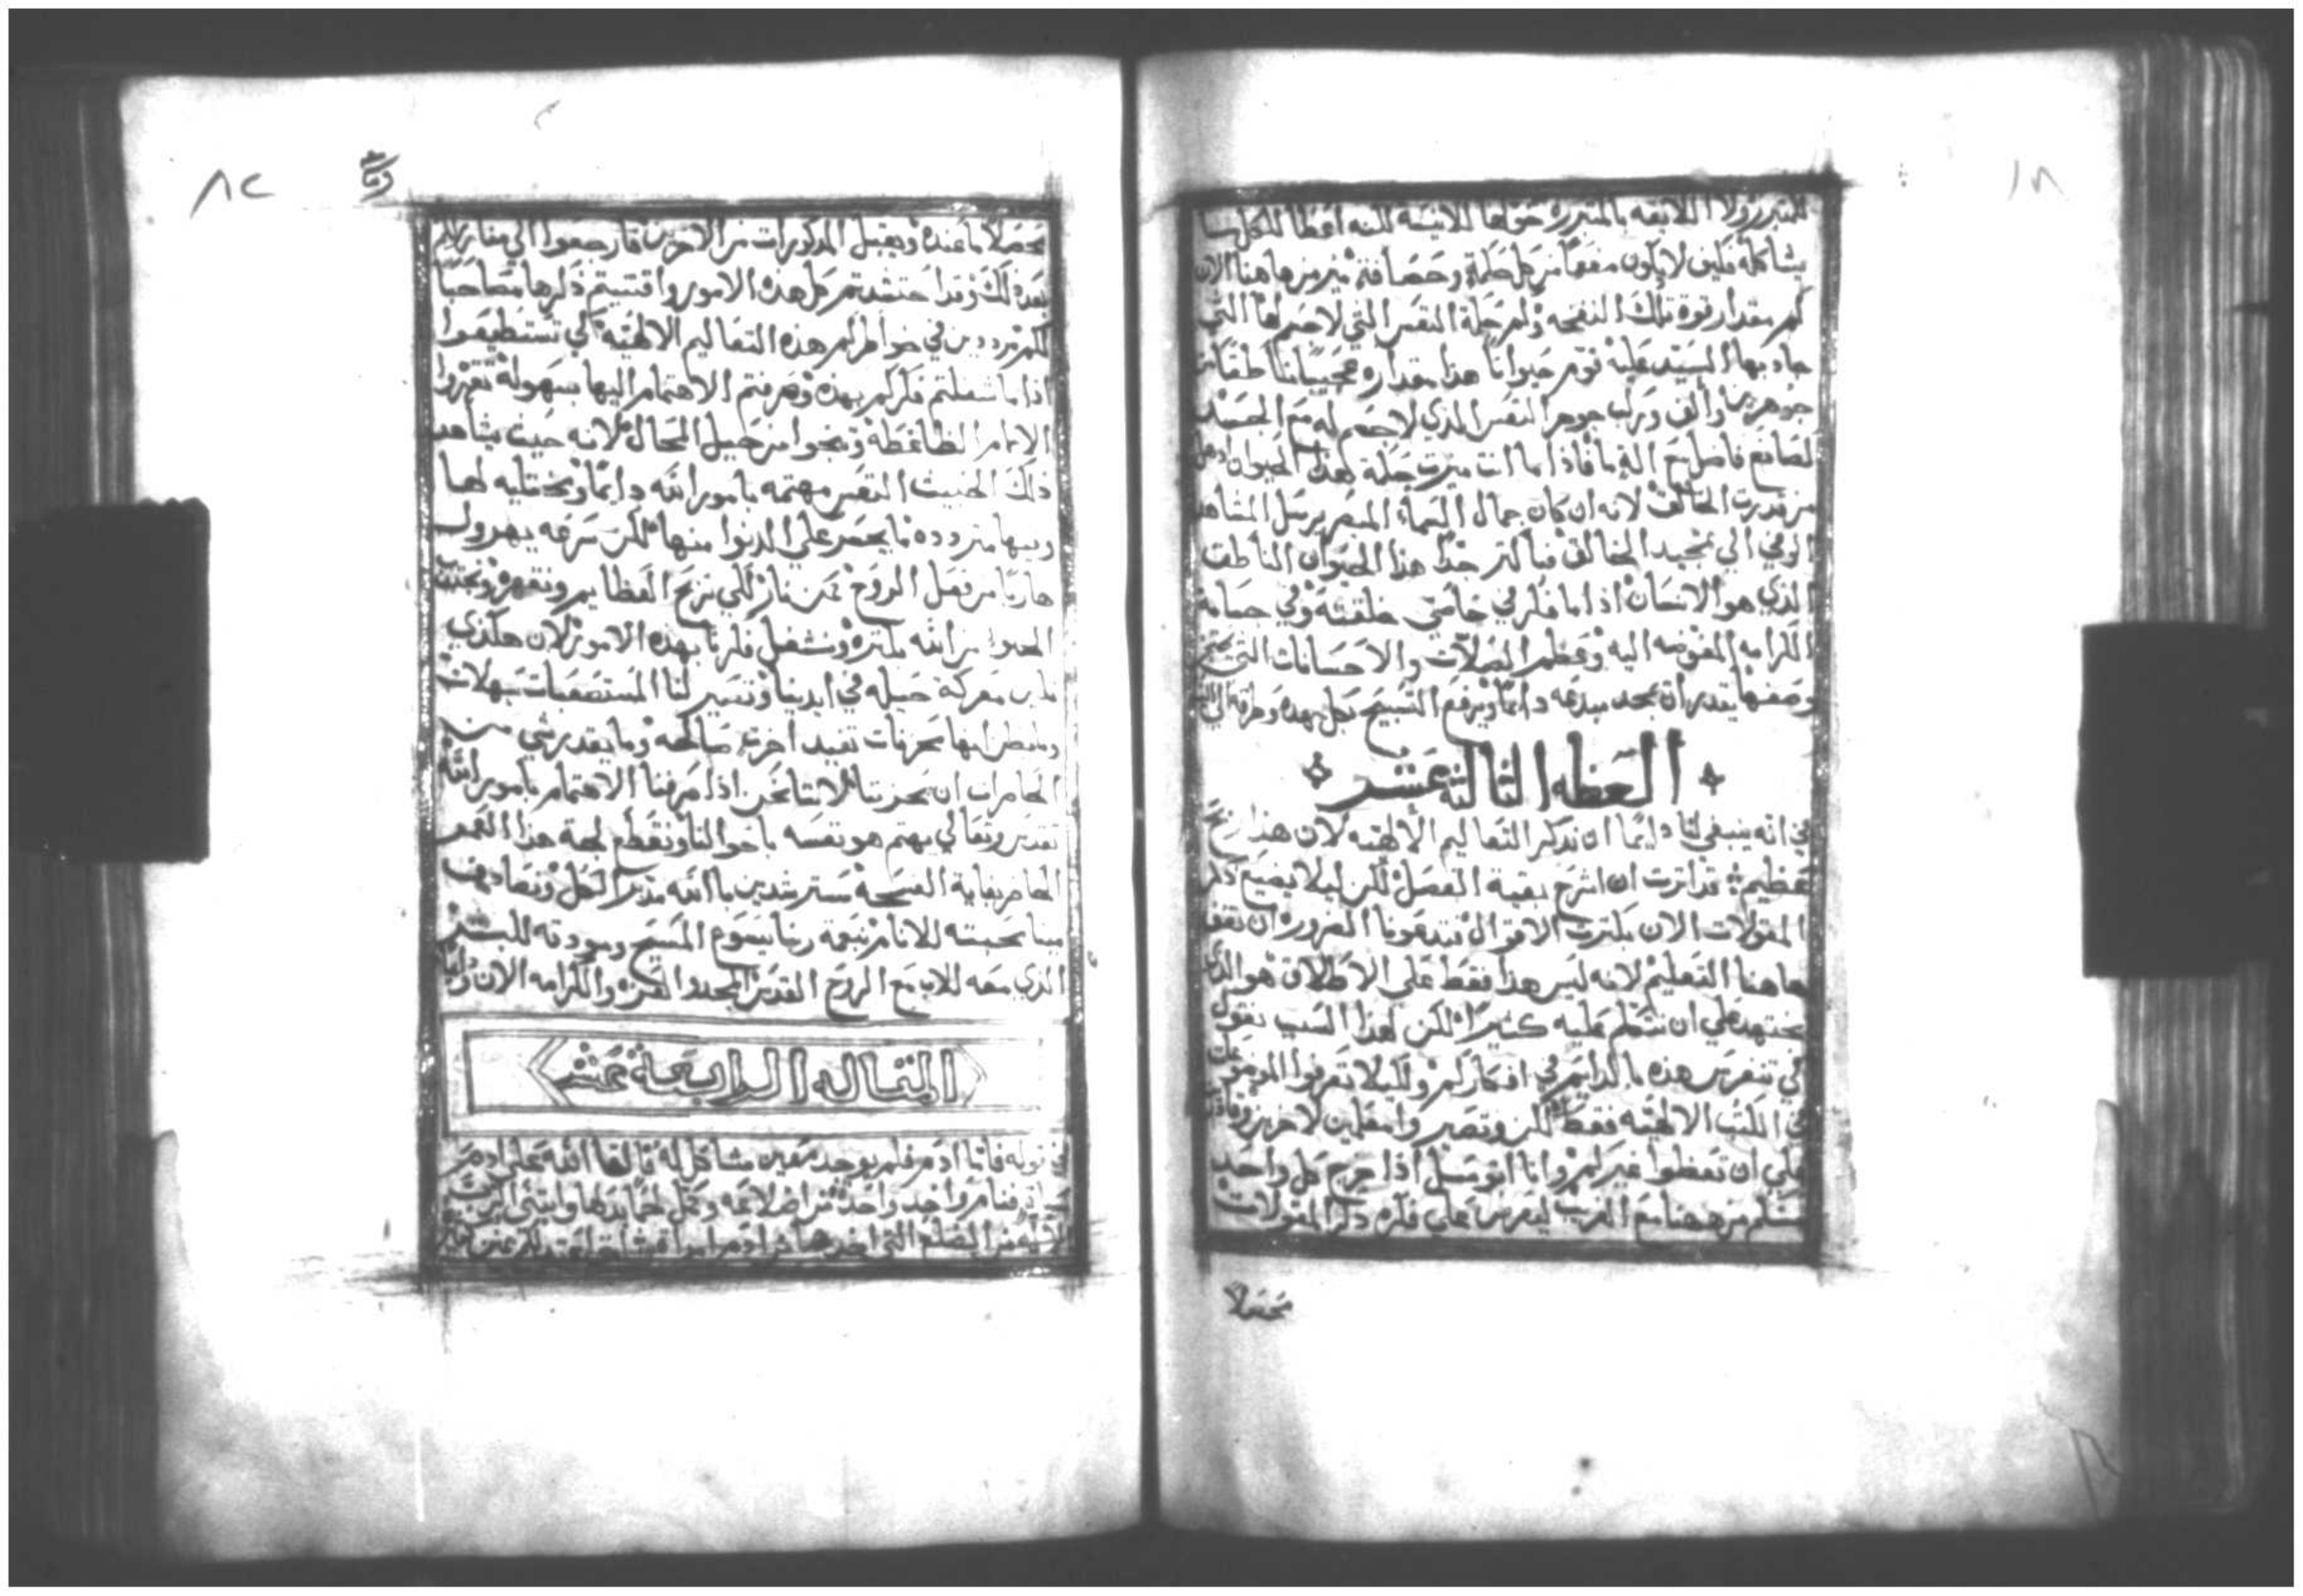 للمتبررولا اللايقه بالمتبرره حواها للانيسه لكنه اعطا للكل
يشاكله فكيف لا يكون مفعمًا من كل حكمة وحصافة ميز من هاهنا الان
كم مقدار قوة تلك النفخه ولم جملة النفس التي لا جسم لها التي
جاد بها السيد عليه قوم حيوانًا هذا مقداره عجيبًا ناطقًا من
جوهرين والف وركب جوهر النفس الذي لا جسم له مع الجسد
لصانع فاضل مع الة ما فاذا ما انت ميزت جملة هذا الحيوان
من قدرت الخالق لانه ان كان جمال السماء المبصر يرسل المشاهد
الوفي الي تمجيد الخالق فبأكثر جدًا هذا الحيوان الناطق
الذي هو الانسان اذا ما فكر في خاصتي خلقته وفي جسامة
الكرامه المفوضه اليه وعظم الصلات والاحسانات التي
وصفها يقدر ان يمجد مبدعه دايمًا ويرفع التسبيح بكل جهده وطاقته الي
العظه الثالثة عشر
في انه ينبغي لنا دايمًا ان نذكر التعاليم الالهيه لان هذا
عظيم قد اثرت ان اشرح بقية الفصل لكن ليلا يضيع ذكر
المقولات الان بكثرت الاقوال فتدعونا الضروره ان نقف
هاهنا التعليم لانه ليس هذا فقط علي الاطلاق هو الذي
نجتهد علي ان نتكلم عليه كثيرًا لكن لهذا السبب نقول
لكي تنغرس هذه بالدايم في افكاركم ولكيلا تعرفوا الموضوعات
في الكتب الالهيه فقط لكن وتصيروا معلمين لاخرين وقادرين
علي ان تعظوا غيركم وانا اتوسل اذا خرج كل واحد
منكم من ههنا مع القريب ليغرس علي فكره ذكر المقولات
محصلا
٨٢
محصلاً ما عنده ويقبل المذكورات من الاخرين فارجعوا الي منازلكم
بعد ذلك وقد احتشدتم كل هذه الامور واقتنيتم ذكرها مصاحبًا
لكم مرددين في خواطركم هذه التعاليم الالهيه لكي تستطيعوا
اذا ما شغلتم فكركم بهذه وصرفتم الاهتمام اليها بسهولة تقهروا
الالام الضاغطة وتنجوا من حيل المحال لانه حيث يشاهد
ذلك الخبيث النفس مهتمه بامور الله دايمًا ومختليه لها
وبيها متردده ما يجسر علي الدنوا منها لكن سرعه يهرول
هاربًا من فعل الروح كمن نار لكي نربح العظايم ونقهره ونجتذب
المعونه من الله بكثره ونشغل فكرنا بهذه الامور لان هكذي
معركة جميله في ايدينا وتصير لنا المستصعبات سهلات
وما يظن ايها محزنات تفيد اخرت صالحه وما يقدر شي من
الحاضرات ان يحزننا لاننا نحن اذا صرفنا الاهتمام بامور الله
تقدس وتعالي يهتم هو نفسه باحوالنا ونقطع لجة هذا العمر
الحاضر بغاية الصحة مسترشدين بالله مدبر الكل ونصادف
مينا محبته للانام بنعمة ربنا يسوع المسيح ومودته للبشر
الذي معه للاب مع الروح القدس المجد والعزه والكرامه الان ودايمًا
المقاله الرابعة عشر
في قوله فاما ادم فلم يوجد معين مشاكل له فالقا الله علي ادم
فنام واخد واحدة من اضلاعه وعمل لحمًا بدلها وابتني الرب
الاله من الضلع التي اخدها من ادم امراة